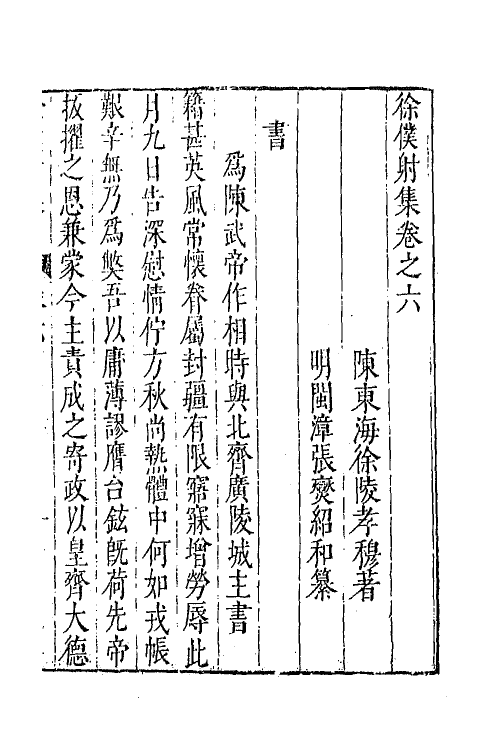 徐僕射集卷之六
陳東海徐陵孝穆著
明閩漳張燮紹和纂
書
爲陳武帝作相時與北齊廣陵城主書
籍甚英風常懷眷屬封疆有限寤寐增勞辱此
月九日告深慰情佇方秋尚熱體中何如戎帳
艱辛無乃爲弊吾以庸薄謬膺台鉉旣荷先帝
拔擢之恩兼蒙今主責成之寄政以皇齊大德